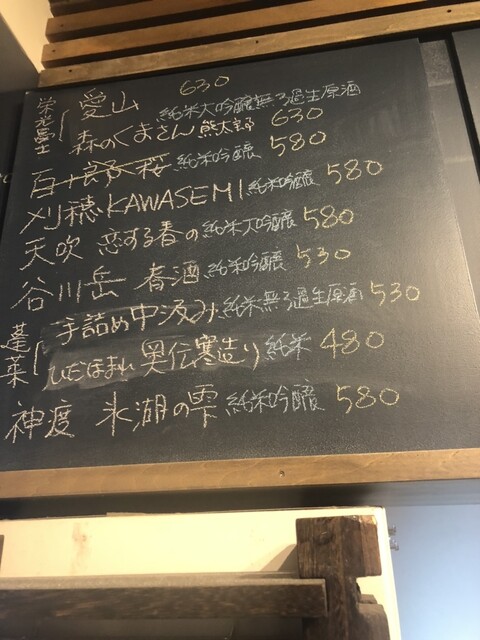 栄光冨士 愛山 純米大吟醸無ろ過生原酒 630
森のくまさん 熊太郎 630
百十郎 桜 純米吟醸 580
刈穂 KAWASEMI 純米吟醸 580
天吹 恋する春の 純米大吟醸 580
谷川岳 春酒 純米吟醸 530
蓬莱 手詰め中汲み 純米無ろ過生原酒 530
ひだほまれ 奥伝寒造り 純米 480
神渡 氷湖の雫 純米吟醸 580